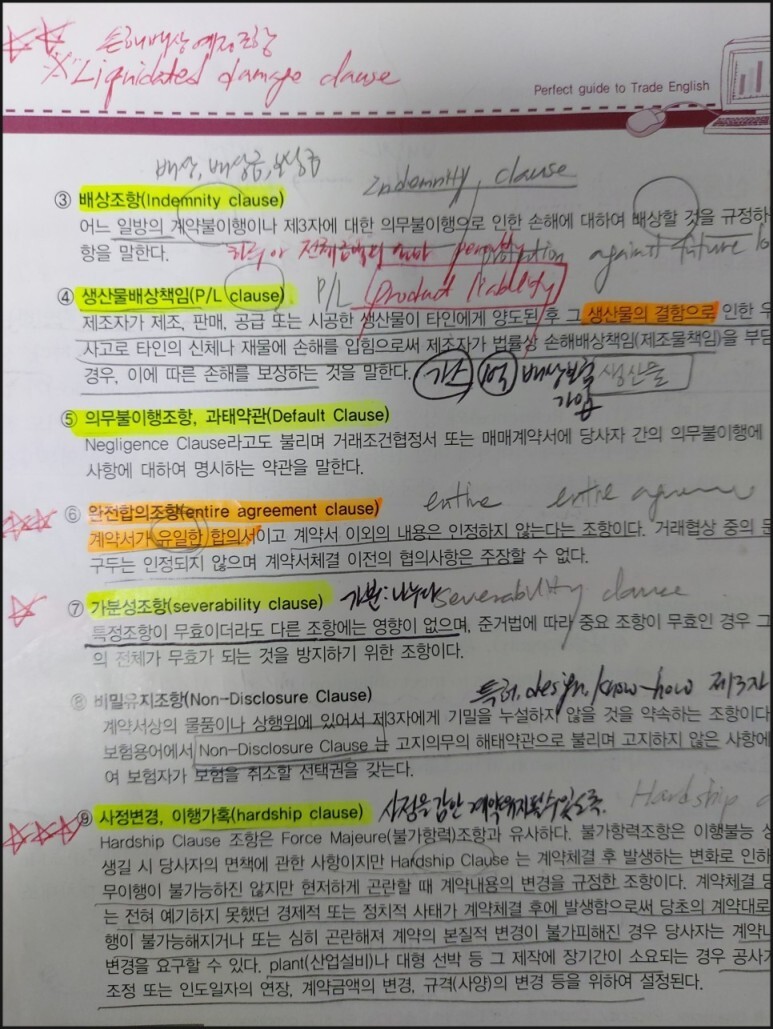 손해배상예정조항
※ Liquidated damage clause
Perfect guide to Trade English
배상, 배상금, 보상금
Indemnity clause
③ 배상조항(Indemnity clause)
어느 일방의 계약불이행이나 제3자에 대한 의무불이행으로 인한 손해에 대하여 배상할 것을 규정하
항을 말한다.
penalty
protection against future lo
④ 생산물배상책임(P/L clause)
P/L product liability
제조자가 제조, 판매, 공급 또는 시공한 생산물이 타인에게 양도된 후 그 생산물의 결함으로 인한 우
사고로 타인의 신체나 재물에 손해를 입힘으로써 제조자가 법률상 손해배상책임(제조물책임)을 부담
경우, 이에 따른 손해를 보상하는 것을 말한다.
가스 1억 배상보험 생산물
가입
⑤ 의무불이행조항, 과태약관(Default Clause)
Negligence Clause라고도 불리며 거래조건협정서 또는 매매계약서에 당사자 간의 의무불이행에
사항에 대하여 명시하는 약관을 말한다.
⑥ 완전합의조항(entire agreement clause)
entire entire agreeme
계약서가 유일한 합의서이고 계약서 이외의 내용은 인정하지 않는다는 조항이다. 거래협상 중의 문
구두는 인정되지 않으며 계약서체결 이전의 협의사항은 주장할 수 없다.
⑦ 가분성조항(severability clause)
가분: 나누다 severability clause
특정조항이 무효이더라도 다른 조항에는 영향이 없으며, 준거법에 따라 중요 조항이 무효인 경우 그
의 전체가 무효가 되는 것을 방지하기 위한 조항이다.
⑧ 비밀유지조항(Non-Disclosure Clause)
특허, design, know-how 제3자
계약서상의 물품이나 상행위에 있어서 제3자에게 기밀을 누설하지 않을 것을 약속하는 조항이다
보험용어에서 Non-Disclosure Clause 는 고지의무의 해태약관으로 불리며 고지하지 않은 사항에
여 보험자가 보험을 취소할 선택권을 갖는다.
⑨ 사정변경, 이행가혹(hardship clause)
사정을 감안 계약유지될수있도록.
Hardship c
Hardship Clause 조항은 Force Majeure(불가항력)조항과 유사하다. 불가항력조항은 이행불능 상
생길 시 당사자의 면책에 관한 사항이지만 Hardship Clause 는 계약체결 후 발생하는 변화로 인하
무이행이 불가능하진 않지만 현저하게 곤란할 때 계약내용의 변경을 규정한 조항이다. 계약체결 당
는 전혀 예기하지 못했던 경제적 또는 정치적 사태가 계약체결 후에 발생함으로써 당초의 계약대로
행이 불가능해지거나 또는 심히 곤란해져 계약의 본질적 변경이 불가피해진 경우 당사자는 계약나
변경을 요구할 수 있다. plant(산업설비)나 대형 선박 등 그 제작에 장기간이 소요되는 경우 공사가
조정 또는 인도일자의 연장, 계약금액의 변경, 규격(사양)의 변경 등을 위하여 설정된다.